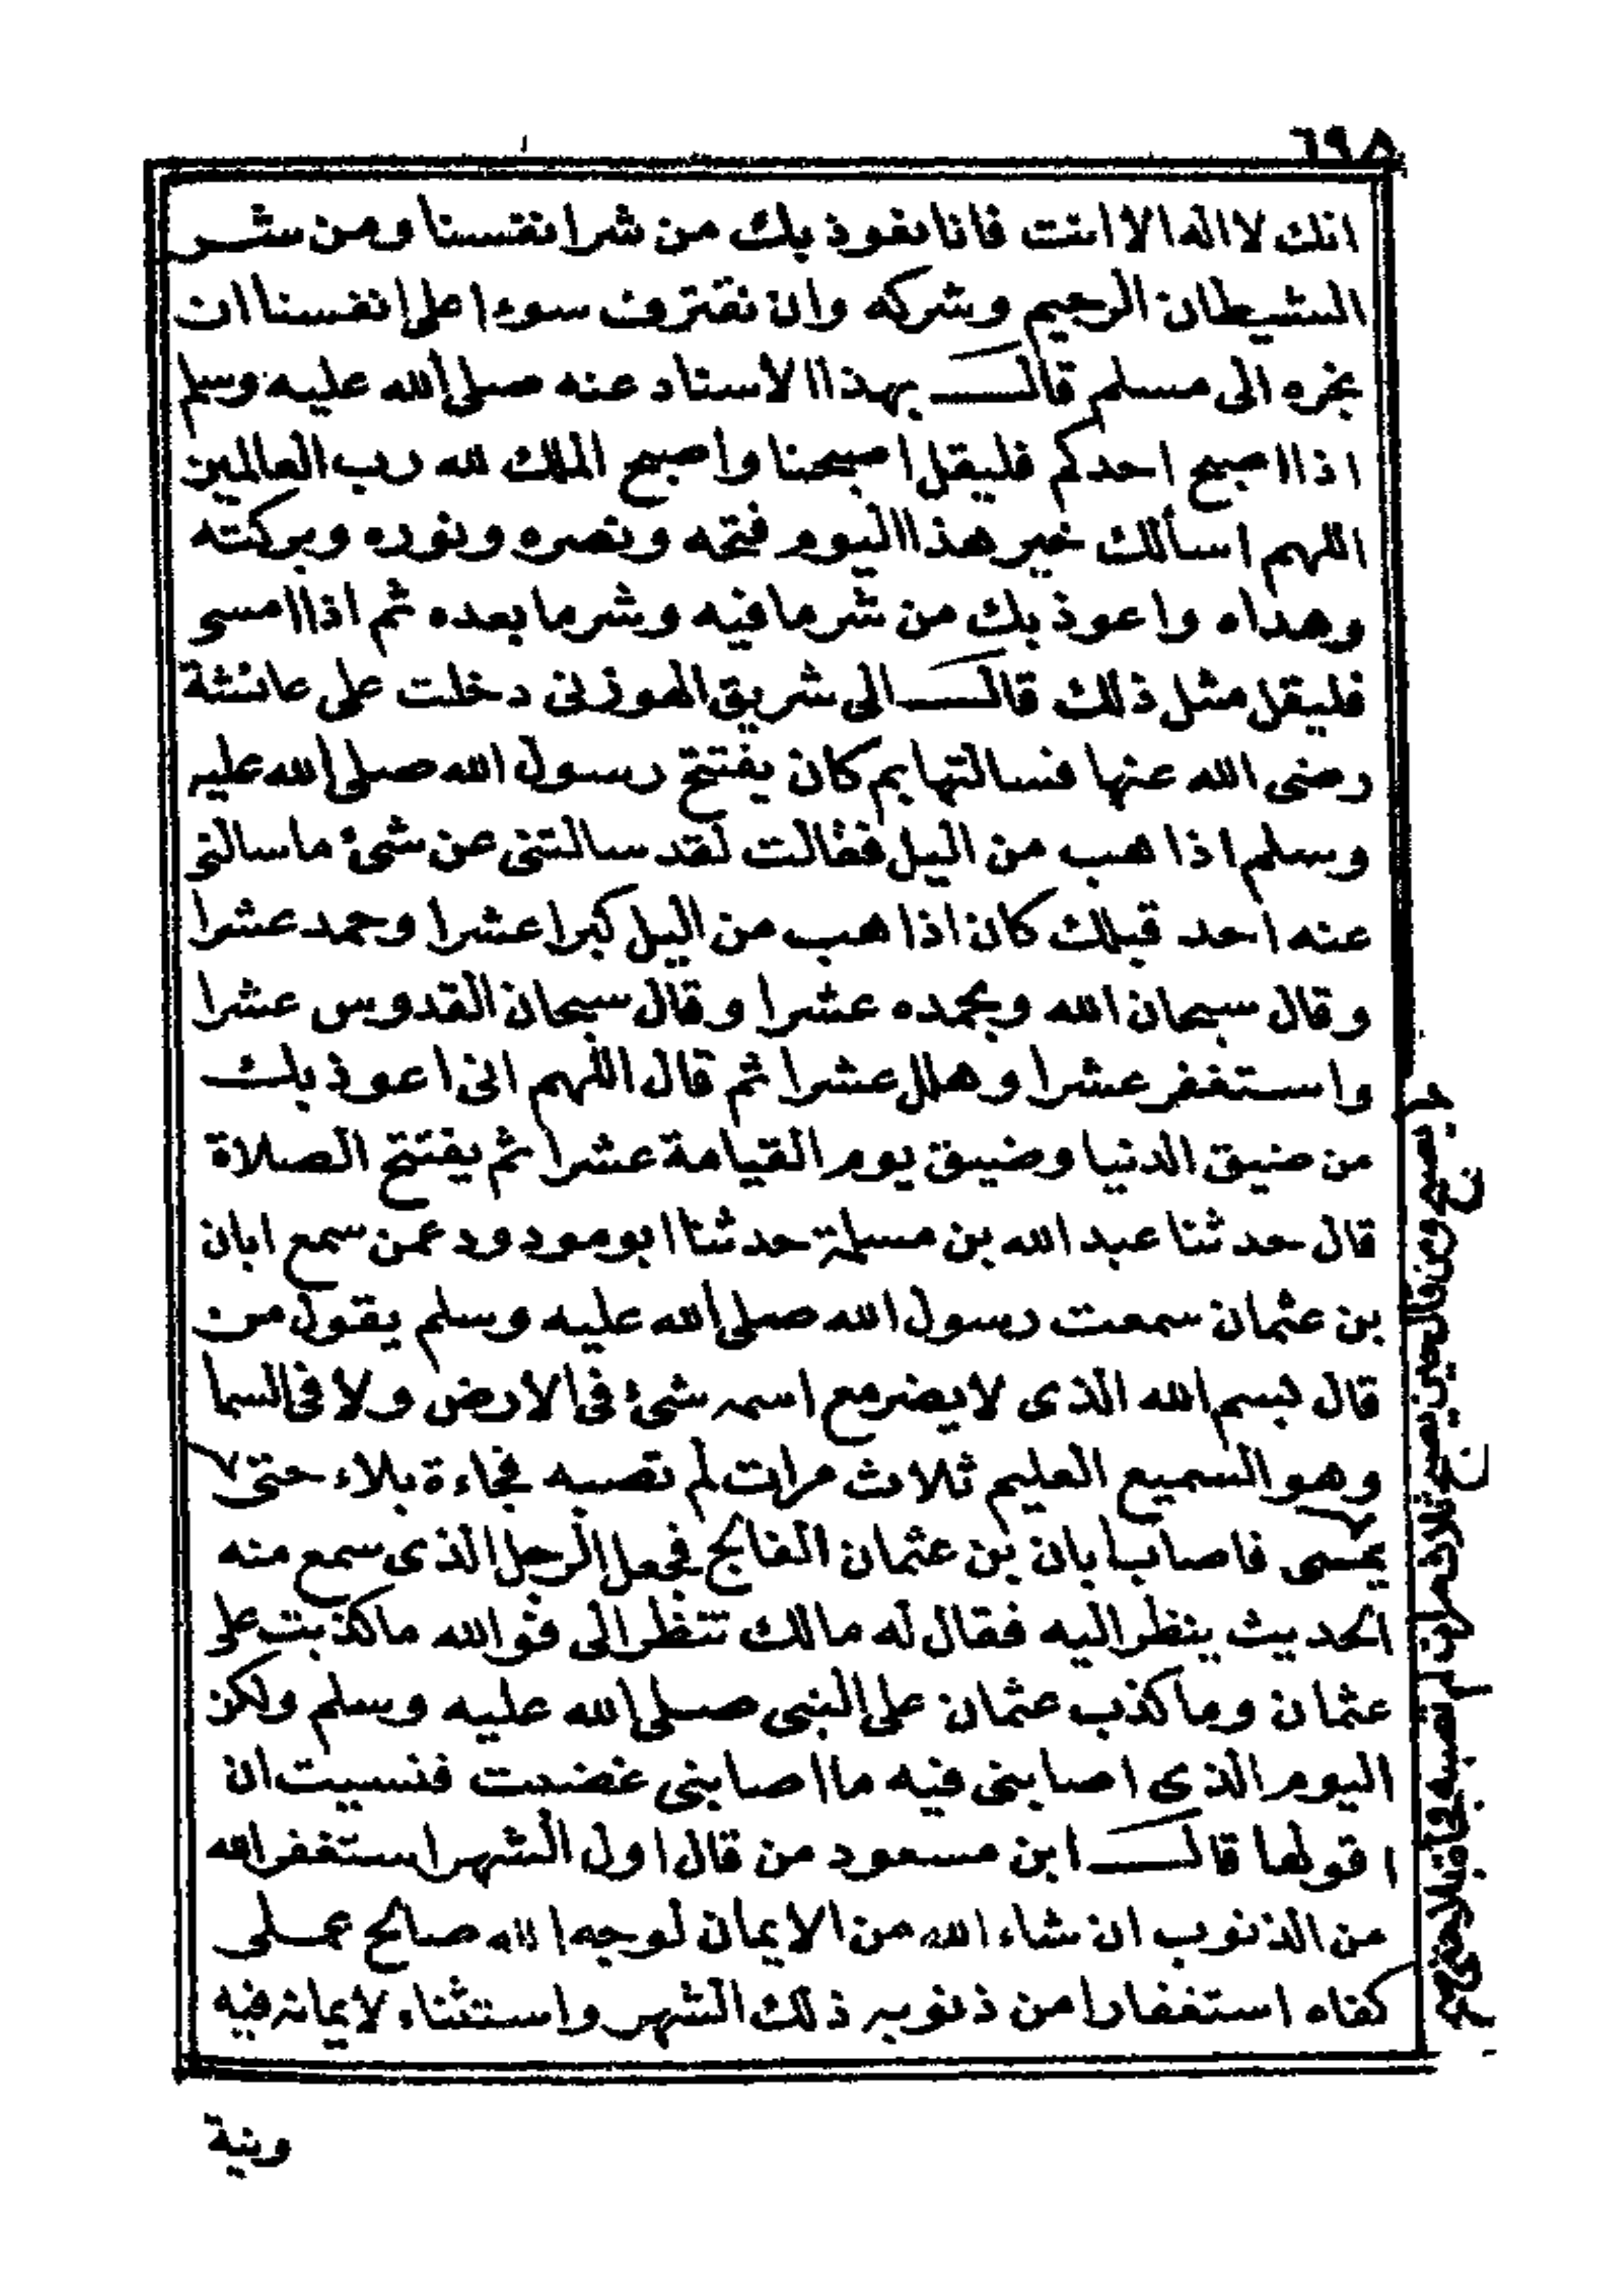 ٦٩٨
انك لا اله الا انت فانا نعوذ بك من شر انفسنا ومن شر
الشيطان الرجيم وشركه وان نقترف سوءا على انفسنا ان
نجره الى مسلم قال بهذا الاسناد عنه صلى الله عليه وسلم
اذا اصبح احدكم فليقل اصبحنا واصبح الملك لله رب العالمين
اللهم اسألك خير هذا اليوم فتحه ونصره ونوره وبركته
وهداه واعوذ بك من شر ما فيه وشر ما بعده ثم اذا امسى
فليقل مثل ذلك قال الى شريق الهوزنى دخلت على عائشة
رضى الله عنها فسالتها بم كان يفتتح رسول الله صلى الله عليه
وسلم اذا هب من اليل فقالت لقد سالتنى عن شئ ما سالنى
عنه احد قبلك كان اذا هب من اليل كبرا عشرا وحمد عشرا
وقال سبحان الله وبحمده عشرا وقال سبحان القدوس عشرا
واستغفر عشرا وهلل عشرا ثم قال اللهم انى اعوذ بك
من ضيق الدنيا وضيق يوم القيامة عشرا ثم يفتتح الصلاة
قال حدثنا عبد الله بن مسلمة حدثنا ابو مودود عمن سمع ابان
بن عثمان سمعت رسول الله صلى الله عليه وسلم يقول من
قال بسم الله الذى لا يضر مع اسمه شئ فى الارض ولا فى السما
وهو السميع العليم ثلاث مرات لم تصبه فجاءة بلاء حتى
يمسى فاصاب ابان بن عثمان الفالج فجعل الرجل الذى سمع منه
الحديث ينظر اليه فقال له مالك تنظر الى فو الله ما كذبت على
عثمان وما كذب عثمان على النبى صلى الله عليه وسلم ولكن
اليوم الذى اصابنى فيه ما اصابنى غضبت فنسيت ان
اقولها قال ابن مسعود من قال اول الشهر استغفر الله
من الذنوب ان شاء الله من الايمان لوجه الله صالح عملى
كفاه استغفارا من ذنوبه ذلك الشهر واستثناء لايمانه فيه
يصبح ومن قال حين يصبح ثلاث مرات لم تصبه فجأة بلاء حتى
ونية